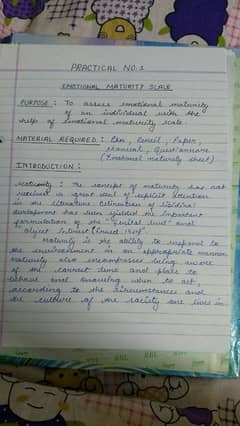 PRACTICAL NO. 1
EMOTIONAL MATURITY SCALE
PURPOSE : To assess emotional maturity
of an individual with the
help of emotional maturity scale.
MATERIAL REQUIRED : Pen, Pencil, Paper,
Manual, Questionnaire
(Emotional maturity sheet)
INTRODUCTION :
Maturity : The concept of maturity has not
received a great deal of explicit attention
in the literature. Delineation of
development has been yielded the important
formulation of the "genital level" and
object Interest
Maturity is the ability to respond to
the environment in an appropriate manner.
Maturity also encompasses being aware
of the correct time and place to
behave and knowing when to act
according to the circumstances and
the culture of the society one lives in